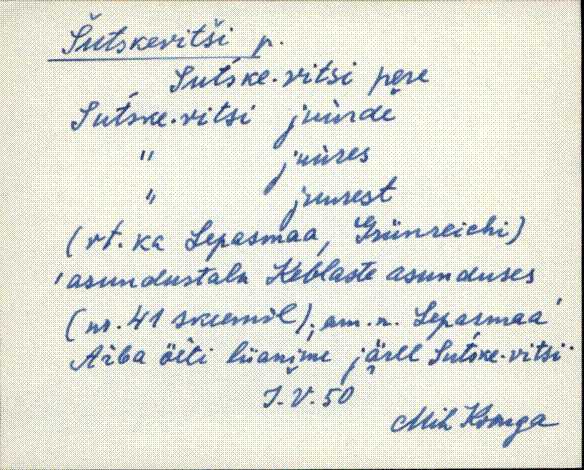 Šutskevitši p.
Sutśke-vitsi pere
Sutśke-vitsi juurde
" juures
" juurest
(vt. ka Lepasmaa, Grünreichi)
'asundustalu Keblaste asunduses
(nr. 41 skeemil); am. n. Lepasmaa'
Aiba öeti liianime järel Sutśke-vitsi.
J. V. 50
Mih Komga